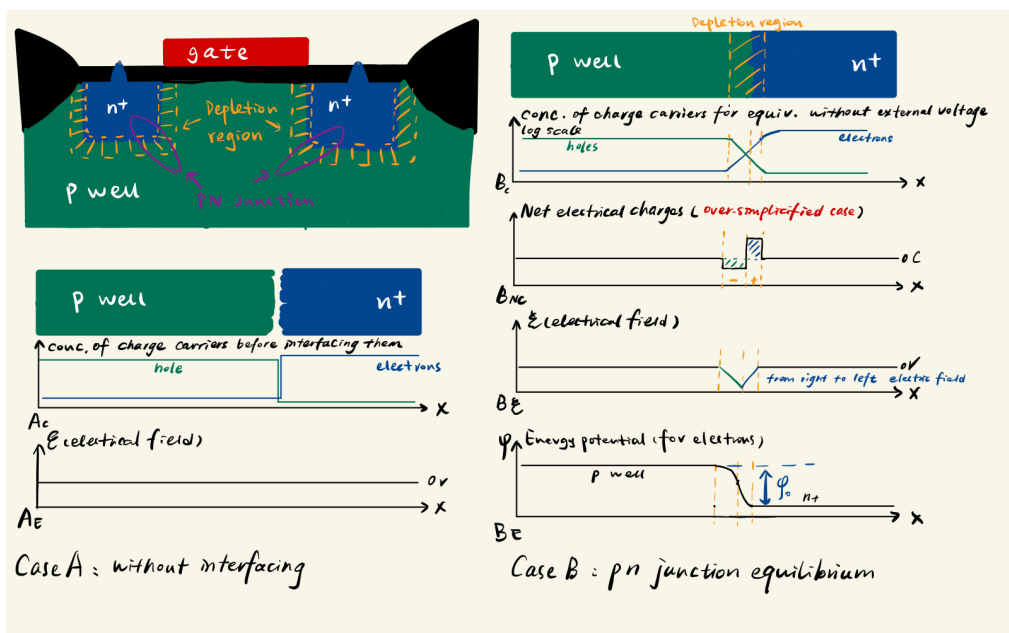 gate
n+
n+
Depletion
region
P well
PN Junction
P well
n+
conc. of charge carriers before interfacing them
hole
electrons
x
Ac
ξ(electrical field)
0v
x
AE
Case A : without interfacing
Depletion region
P well
n+
conc. of charge carriers for equiv. without external voltage
log scale
holes
electrons
Bc
x
Net electrical charges (over-simplicified case)
0 C
- +
BNC
x
ξ(electrical field)
0V
from right to left electric field
Bξ
x
φ Energy potential (for electrons)
P well
φ0
n+
BE
x
Case B : pn junction equilibrium